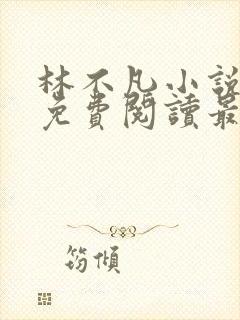 林不凡小說
免費閱讀最
筠傾